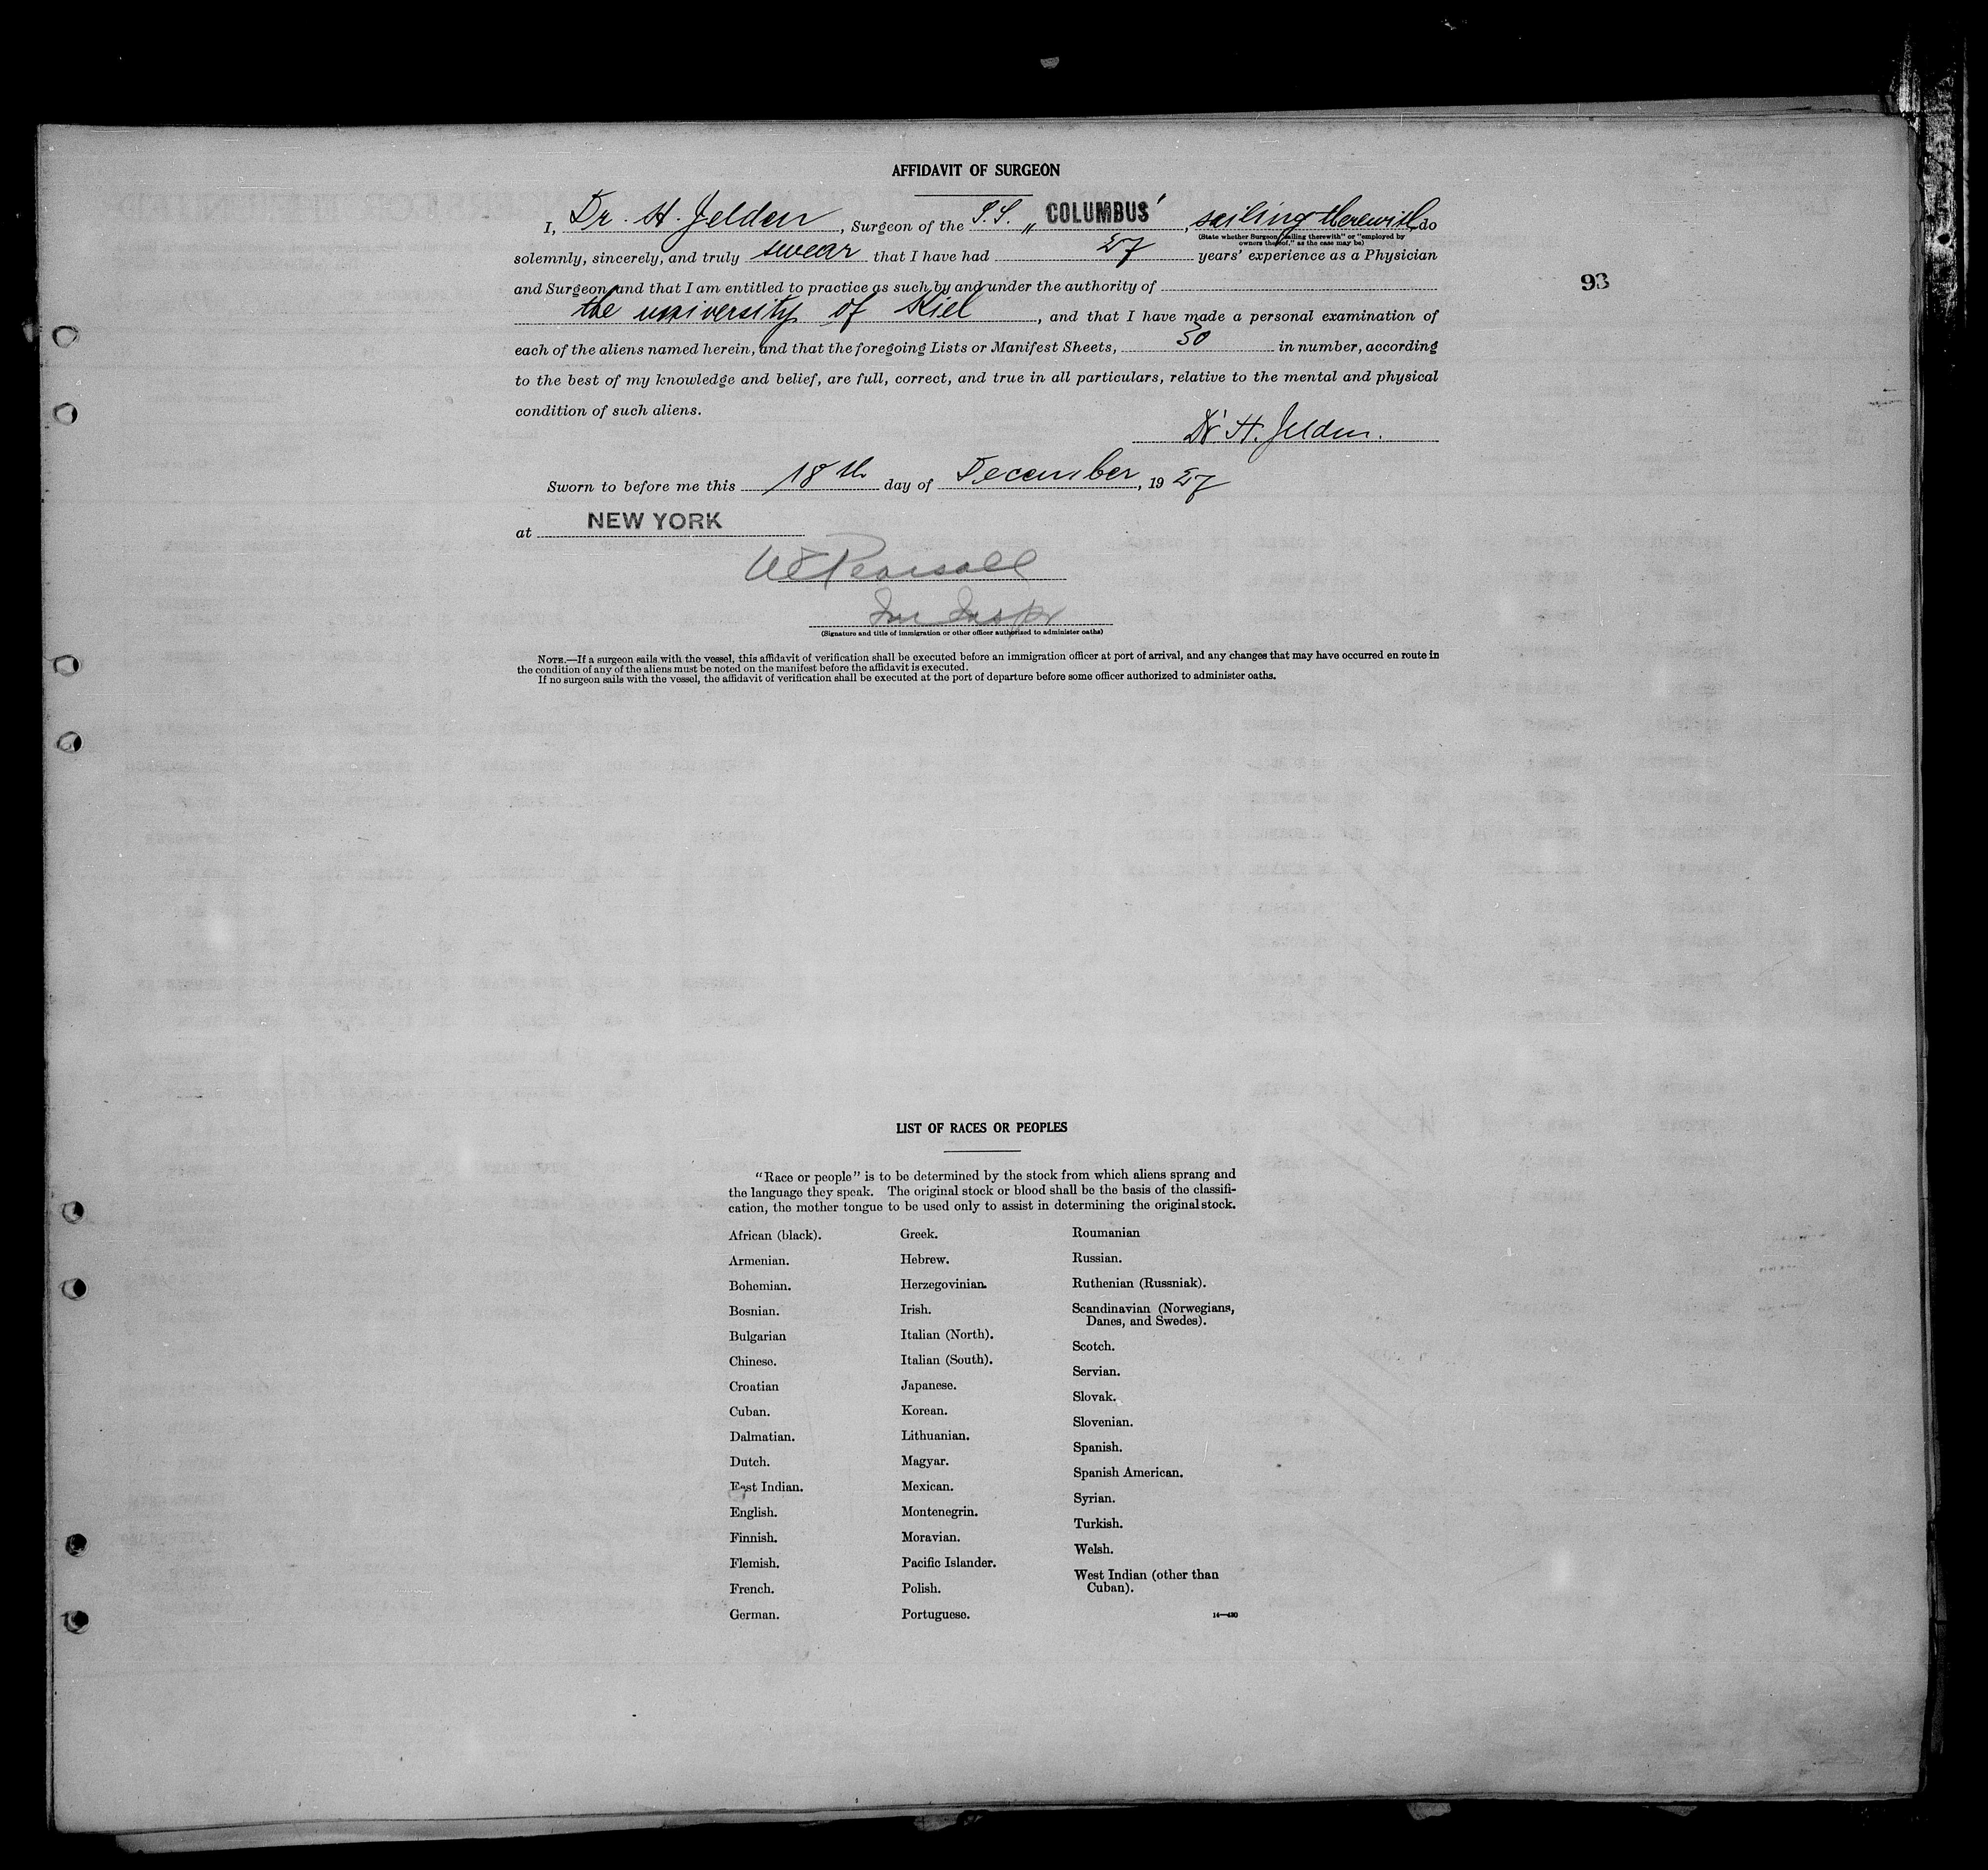 AFFIDAVIT OF SURGEON
I, Dr. H. Jelden, Surgeon of the S.S. „COLUMBUS", sailing therewith do
(State whether Surgeon "sailing therewith" or "employed by
owners thereof," as the case may be)
solemnly, sincerely, and truly swear that I have had 27 years' experience as a Physician
93
and Surgeon and that I am entitled to practice as such by and under the authority of
the university of Kiel, and that I have made a personal examination of
each of the aliens named herein, and that the foregoing Lists or Manifest Sheets, 30 in number, according
to the best of my knowledge and belief, are full, correct, and true in all particulars, relative to the mental and physical
condition of such aliens.
Dr. H. Jelden.
Sworn to before me this 18th day of December, 1927
at NEW YORK
WE Pearsall
Im Inspr
(Signature and title of immigration or other officer authorized to administer oaths)
NOTE.—If a surgeon sails with the vessel, this affidavit of verification shall be executed before an immigration officer at port of arrival, and any changes that may have occurred en route in
the condition of any of the aliens must be noted on the manifest before the affidavit is executed.
If no surgeon sails with the vessel, the affidavit of verification shall be executed at the port of departure before some officer authorized to administer oaths.
LIST OF RACES OR PEOPLES
"Race or people" is to be determined by the stock from which aliens sprang and
the language they speak. The original stock or blood shall be the basis of the classifi-
cation, the mother tongue to be used only to assist in determining the original stock.
African (black).
Armenian.
Bohemian.
Bosnian.
Bulgarian
Chinese.
Croatian
Cuban.
Dalmatian.
Dutch.
East Indian.
English.
Finnish.
Flemish.
French.
German.
Greek.
Hebrew.
Herzegovinian.
Irish.
Italian (North).
Italian (South).
Japanese.
Korean.
Lithuanian.
Magyar.
Mexican.
Montenegrin.
Moravian.
Pacific Islander.
Polish.
Portuguese.
Roumanian
Russian.
Ruthenian (Russniak).
Scandinavian (Norwegians,
Danes, and Swedes).
Scotch.
Servian.
Slovak.
Slovenian.
Spanish.
Spanish American.
Syrian.
Turkish.
Welsh.
West Indian (other than
Cuban).